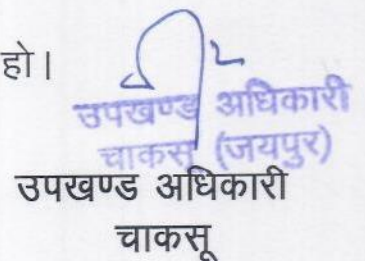 हो।
उपखण्ड अधिकारी
चाकसू (जयपुर)
उपखण्ड अधिकारी
चाकसू